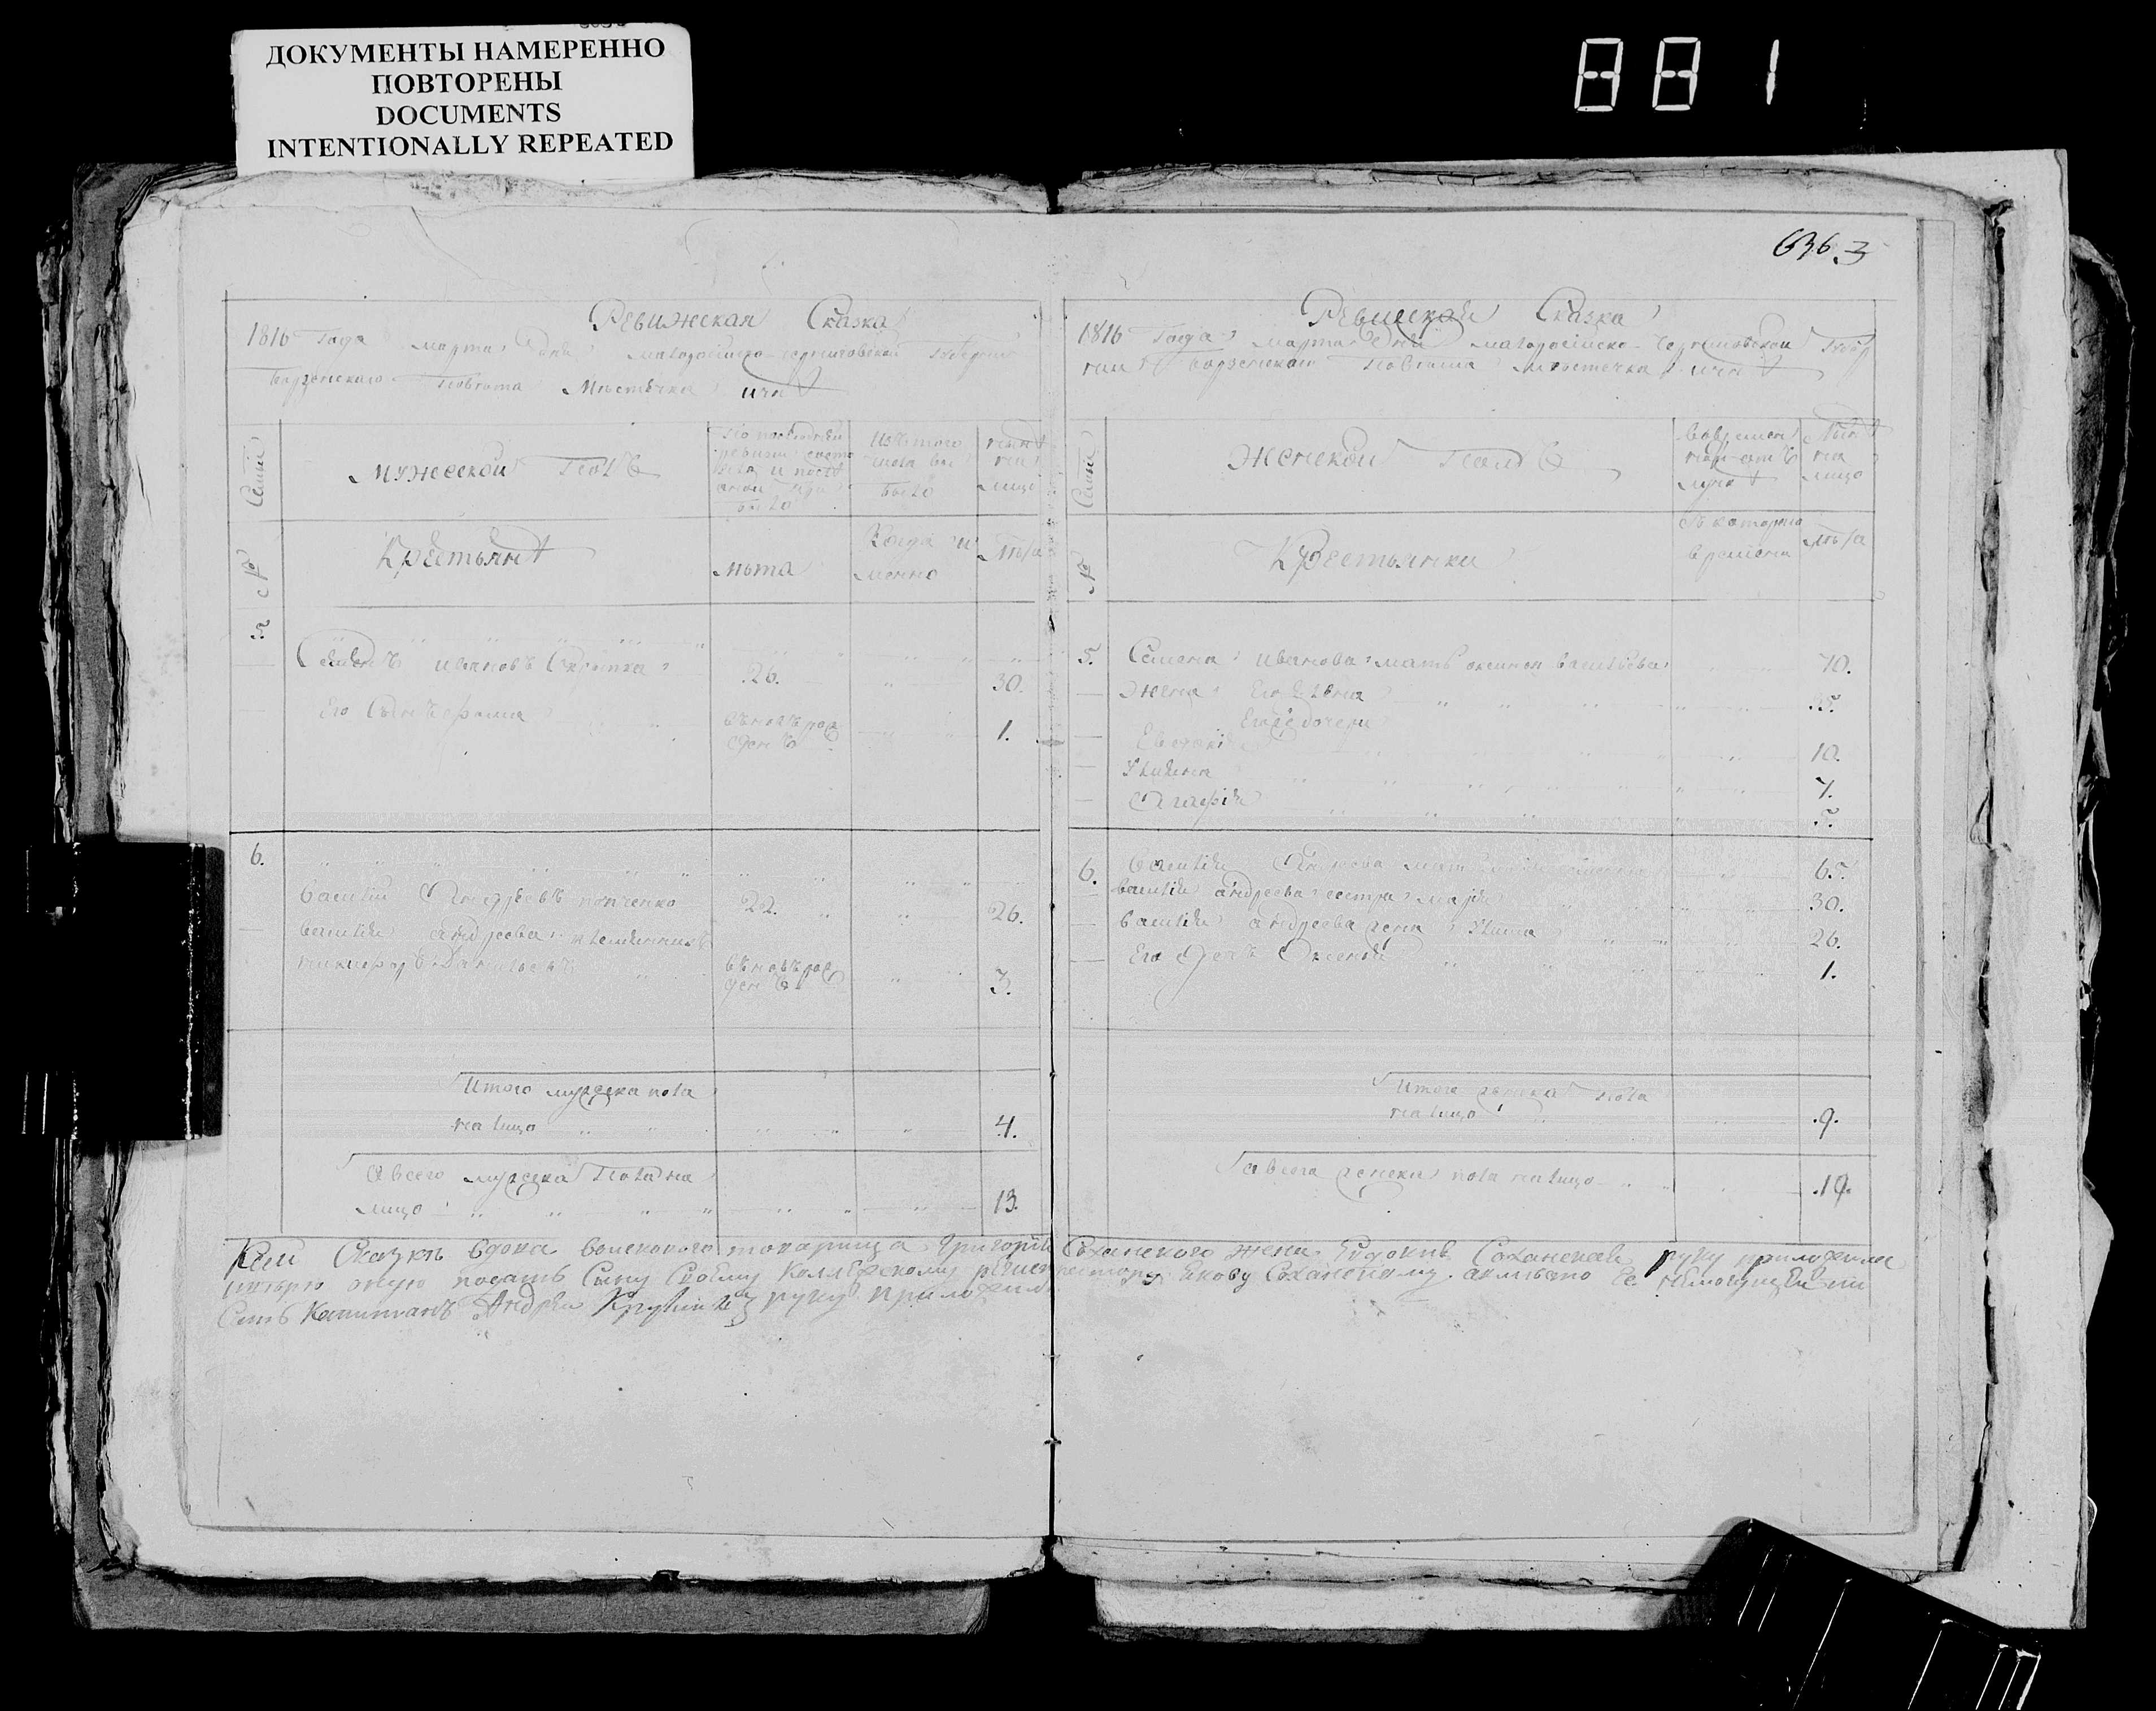 ДОКУМЕНТЫ НАМЕРЕННО
ПОВТОРЕНЫ
DOCUMENTS
INTENTIONALLY REPEATED
881
636. 3
Ревижская Сказка
1816 года марта дня малоросійско-черниговской Губернии
Борзенского повѣта Мѣстечка ични
Семьи
мужеской полъ
по последней ревизіи состояло и после оной прибыло
Изъ того числа выбыло
нынѣ на лицо
№
Крестьянѣ
лѣта
Когда имянно
лѣта
5.
Семенъ ивановъ Скрыпка 26. 30.
Его Сынъ фома вновь рожденъ 1.
6.
василій Андреевъ попченко 22. 26.
василія андреева племянникъ
никифоръ вновь рожденъ 3.
Итого мужеска пола
налицо 4.
А всего мужеска пола на
лицо 13.
Ревиская Сказка
1816 Года марта дня малоросійско-Черниговской Губер
нии борзенского повѣта мѣстечка ични
Семьи
женской полъ
во временной отлучкѣ
Нынѣ на лицо
№
Крестьянки
съ которого времени
лѣта
5. Семена иванова мать васильева 70.
жена Его 35.
Его дочери
Евдокія 10.
7.
Агафія 5.
6. василія мать 65.
василія андреева сестра марія 30.
василія андреева жена 26.
Его дочь Оксенія 1.
Итого женска пола
налицо 9.
а всего женска пола налицо 19.
Сей Сказкѣ вдова воискового товарища Григорія Соханского жена Евдокия Соханская руку приложила
которю оную подать Сину Своему Коллежскому регистратору Якову Соханскому.
Капитанъ Андрей руку приложилъ